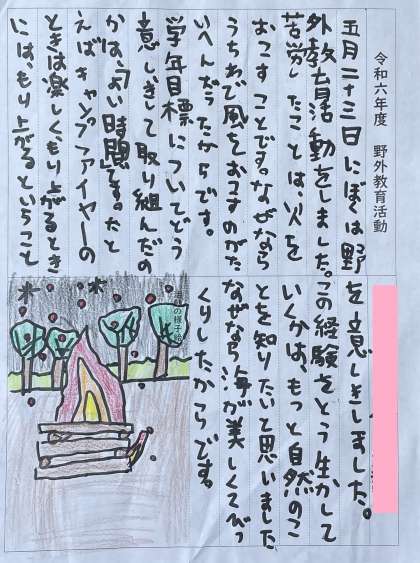 令和六年度 野外教育活動
五月二十三日にぼくは野
外教育活動をしました。
苦労したことは、火を
おこすことです。なぜなら
うちわで風をおこすのがた
いへんだったからです。
学年目標についてどう
意しきして取り組んだの
かは、「よい時間」です。たと
えばキャンプファイヤーの
ときは楽しく、もり上がるとき
には、もり上がるということ
を意しきしました。
この経験をどう生かして
いくかは、もっと自然のこ
とを知りたいと思いました
なぜなら海が美しくてびっ
くりしたからです。
の様子絵